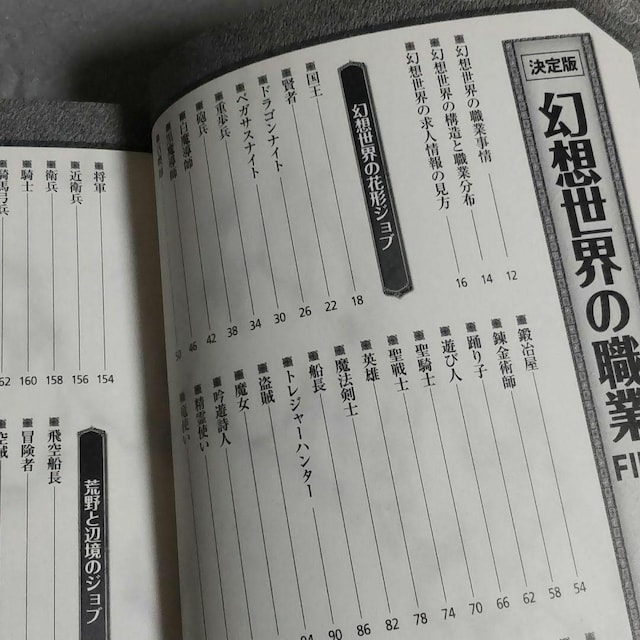 決定版
幻想世界の職業
FI
幻想世界の職業事情 12
幻想世界の構造と職業分布 14
幻想世界の求人情報の見方 16
幻想世界の花形ジョブ
国王 18
賢者 22
ドラゴンナイト 26
ペガサスナイト 30
重歩兵 34
砲兵 38
白魔導師 42
黒魔導師 46
50
鍛冶屋 54
錬金術師 58
踊り子 62
遊び人 66
聖騎士 70
聖戦士 74
英雄 78
魔法剣士 82
船長 86
トレジャーハンター 90
盗賊 94
魔女
吟遊詩人
精霊使い
竜使い
将軍 154
近衛兵 156
衛兵 158
騎士 160
騎馬弓兵 62
荒野と辺境のジョブ
飛空船長
冒険者
空賊